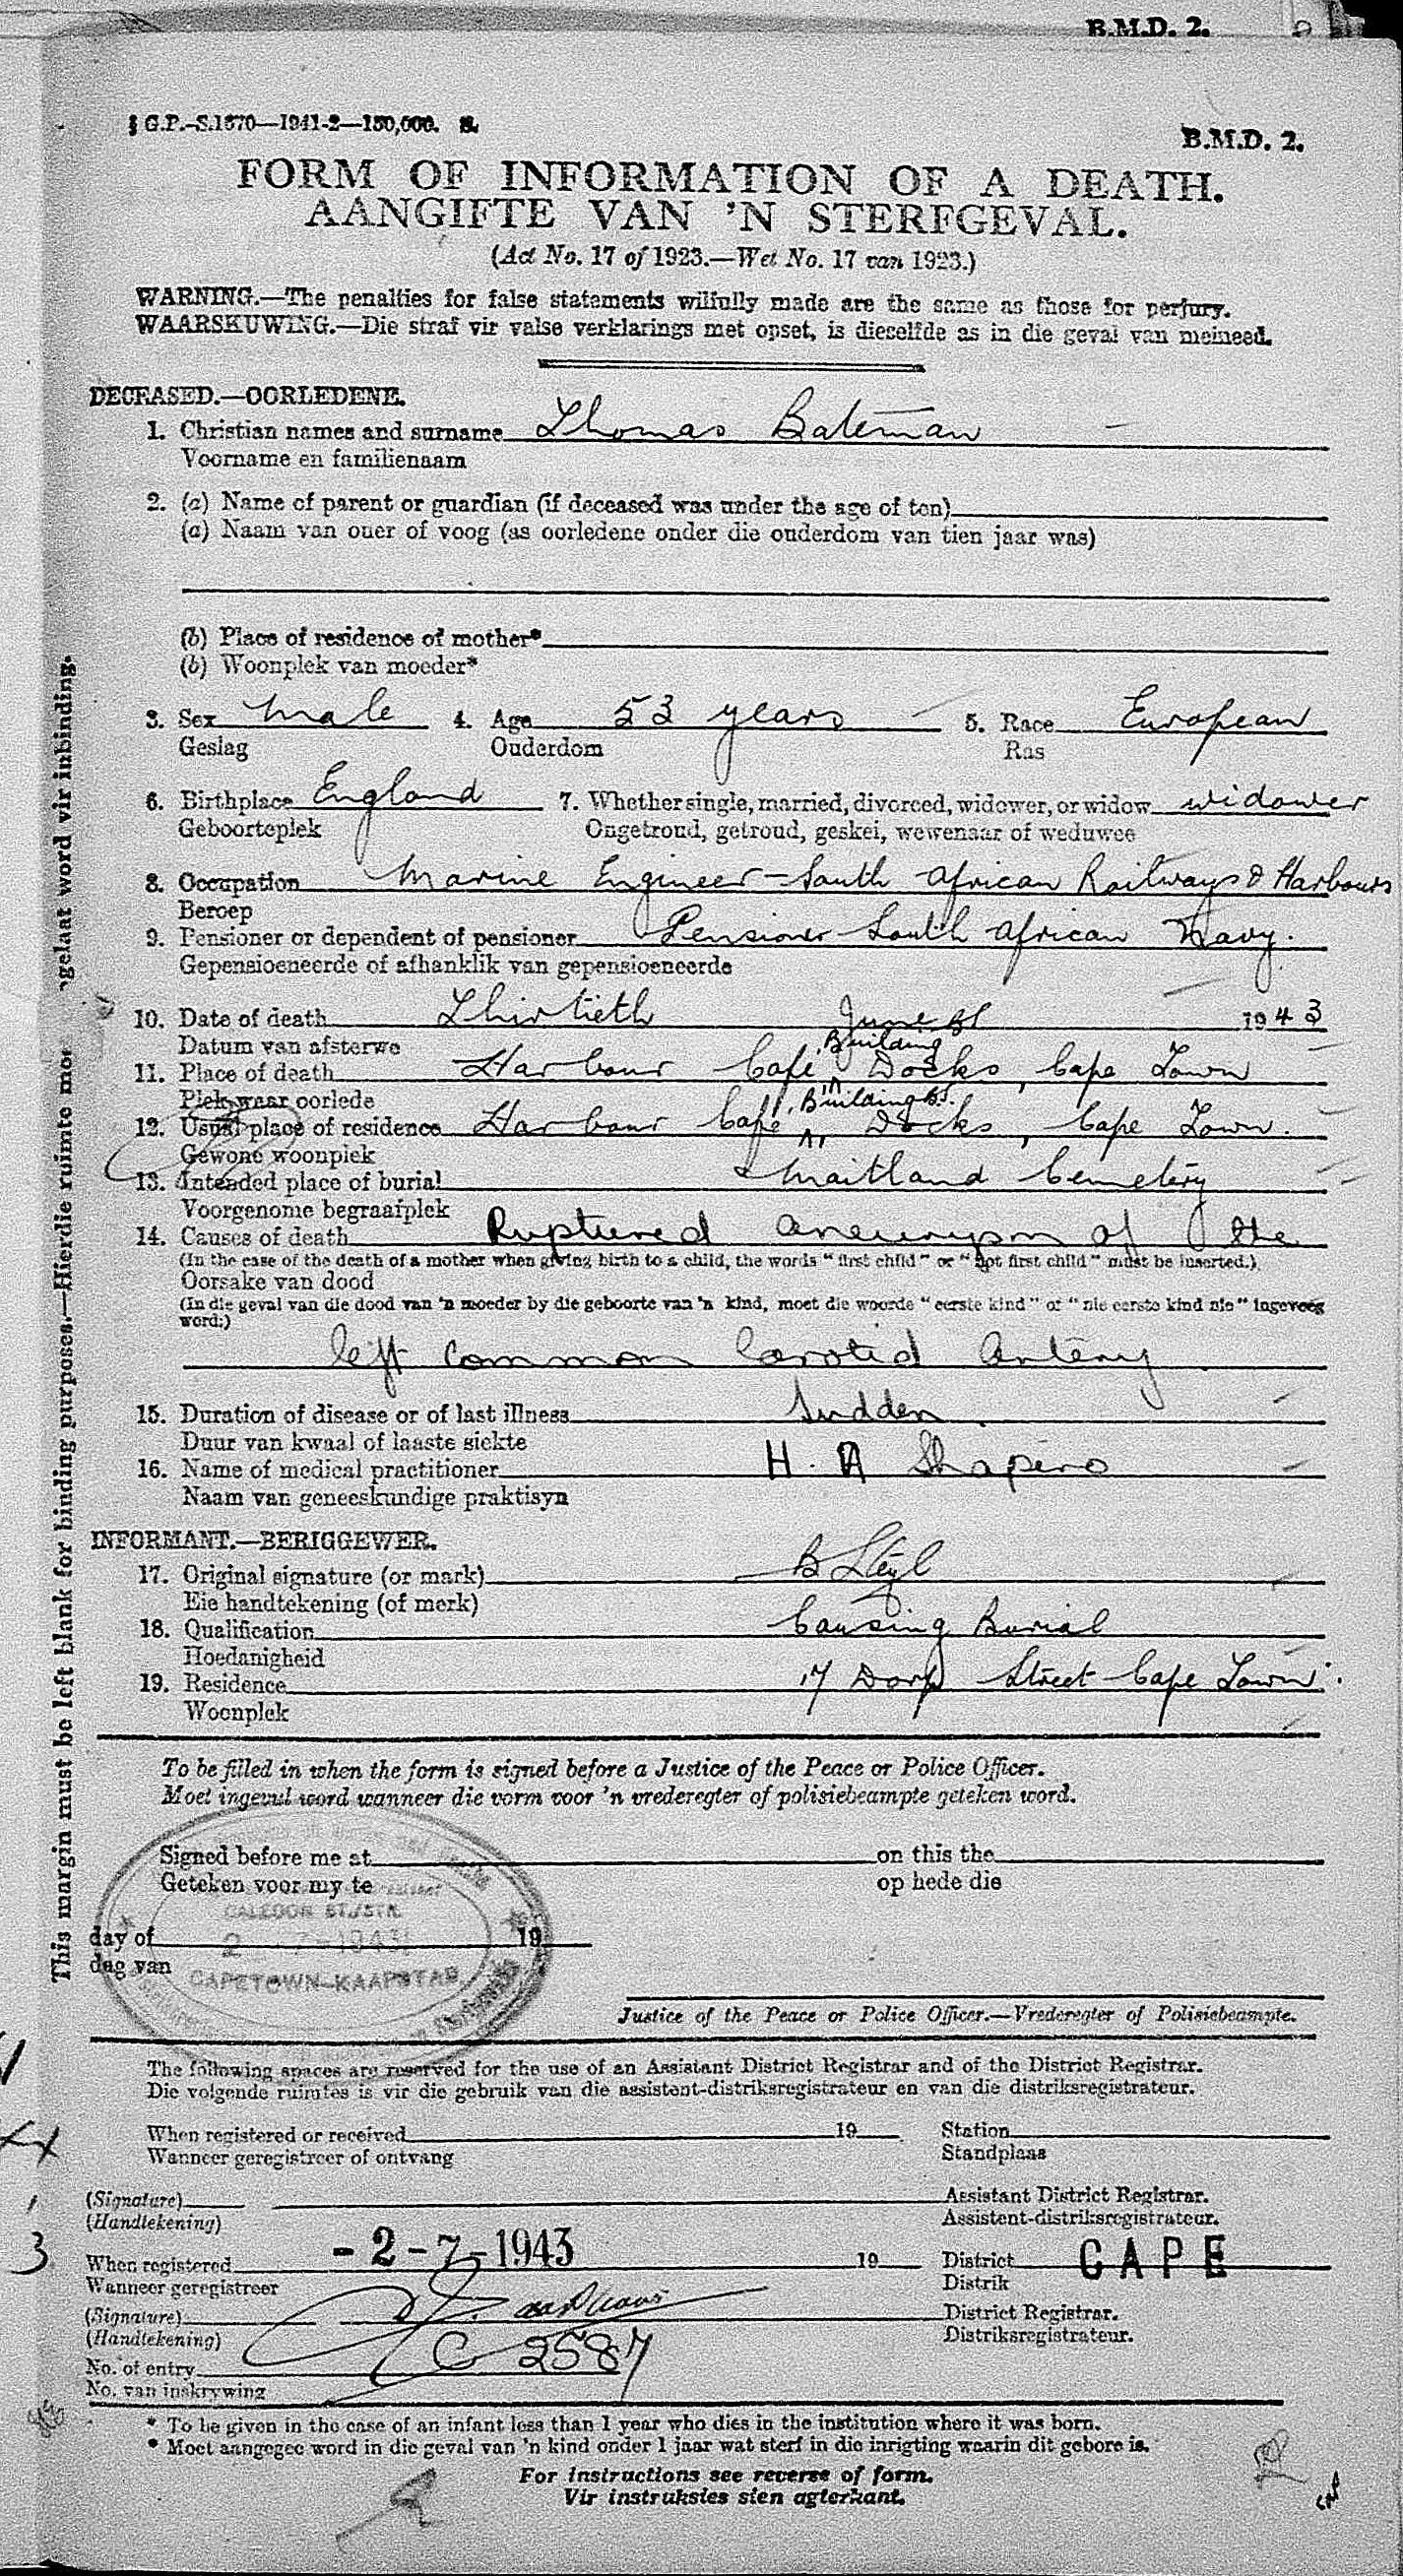 B.M.D. 2.
G.P.-S.1570—1941-2—150,000. S.
B.M.D. 2.
FORM OF INFORMATION OF A DEATH.
AANGIFTE VAN 'N STERFGEVAL.
(Act No. 17 of 1923.—Wet No. 17 van 1923.)
WARNING.—The penalties for false statements wilfully made are the same as those for perjury.
WAARSKUWING.—Die straf vir valse verklarings met opset, is dieselfde as in die geval van meineed.
DECEASED.—OORLEDENE.
1. Christian names and surname Thomas Bateman
Voorname en familienaam
2. (a) Name of parent or guardian (if deceased was under the age of ten)
(a) Naam van ouer of voog (as oorledene onder die ouderdom van tien jaar was)
(b) Place of residence of mother*
(b) Woonplek van moeder*
3. Sex male 4. Age 53 years 5. Race European
Geslag Ouderdom Ras
6. Birthplace England 7. Whether single, married, divorced, widower, or widow widower
Geboorteplek Ongetroud, getroud, geskei, wewenaar of weduwee
8. Occupation Marine Engineer - South African Railways & Harbours
Beroep
9. Pensioner or dependent of pensioner Pensioner South African Navy.
Gepensioeneerde of afhanklik van gepensioeneerde
10. Date of death Thirtieth June 1943
Datum van afsterwe
Building
11. Place of death Harbour Cafe, Docks, Cape Town
Plek waar oorlede
Building
12. Usual place of residence Harbour Cafe, Docks, Cape Town.
Gewone woonplek
13. Intended place of burial Maitland Cemetery
Voorgenome begraafplek
14. Causes of death Ruptured aneurysm of the
(In the case of the death of a mother when giving birth to a child, the words "first child" or "not first child" must be inserted.)
Oorsake van dood
(In die geval van die dood van 'n moeder by die geboorte van 'n kind, moet die woorde "eerste kind" of "nie eerste kind nie" ingevoeg
word:)
left common Carotid Artery
15. Duration of disease or of last illness Sudden
Duur van kwaal of laaste siekte
16. Name of medical practitioner H. A Shapiro
Naam van geneeskundige praktisyn
INFORMANT.—BERIGGEWER.
17. Original signature (or mark) B Steyl
Eie handtekening (of merk)
18. Qualification Causing Burial
Hoedanigheid
19. Residence 17 Dorp Street Cape Town
Woonplek
To be filled in when the form is signed before a Justice of the Peace or Police Officer.
Moet ingevul word wanneer die vorm voor 'n vrederegter of polisiebeampte geteken word.
Signed before me at on this the
Geteken voor my te op hede die
CALEDON ST./STR.
day of 19
2 -7-1943
dag van
CAPETOWN-KAAPSTAD
Justice of the Peace or Police Officer.—Vrederegter of Polisiebeampte.
The following spaces are reserved for the use of an Assistant District Registrar and of the District Registrar.
Die volgende ruimtes is vir die gebruik van die assistent-distriksregistrateur en van die distriksregistrateur.
When registered or received 19 Station
Wanneer geregistreer of ontvang Standplaas
(Signature) Assistant District Registrar.
(Handtekening) Assistent-distriksregistrateur.
When registered -2-7-1943 19 District CAPE
Wanneer geregistreer Distrik
(Signature) District Registrar.
(Handtekening) Distriksregistrateur.
No. of entry C 2587
No. van inskrywing
* To be given in the case of an infant less than 1 year who dies in the institution where it was born.
* Moet aangegee word in die geval van 'n kind onder 1 jaar wat sterf in die inrigting waarin dit gebore is.
For instructions see reverse of form.
Vir instruksies sien agterkant.
This margin must be left blank for binding purposes.—Hierdie ruimte moet oopgelaat word vir inbinding.
3